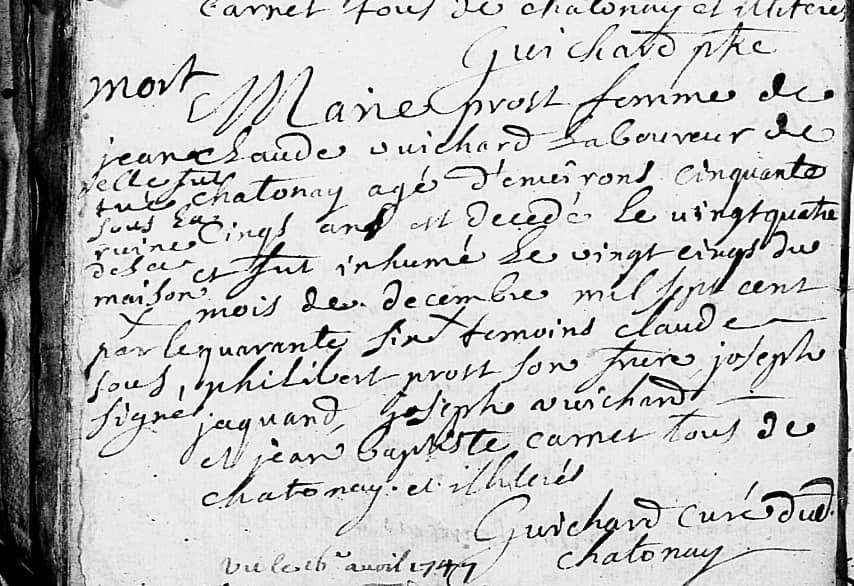 Carnet tous de chatonay et illiteres
Guichard ptre
mort
Marie prost femme de
jean claude vuichard Laboureur de
chatonay agé d'environs cinquante
Cinqs ans est decedé Le vingtquatre
et fut inhumé Le vingt cinqs du
mois de decembre mil sept cent
quarante six temoins claude
philibert prost son frere, joseph
jaquand, joseph vuichard
et jean baptiste carnet tous de
chatonay et illiterés
Guichard curé dud
chatonay
elle fut
tué
sous La
ruine
de sa
maison
par le
sous,
signé
vu le 16 avril 1747